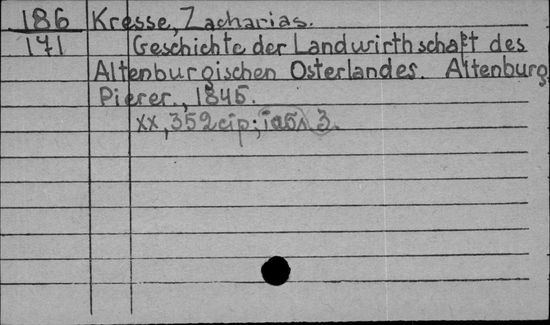 186 Kresse, Zacharias.
171 Geschichte der Landwirthschaft des
Altenburgischen Osterlandes. Altenburg,
Pierer., 1845.
xx, 352